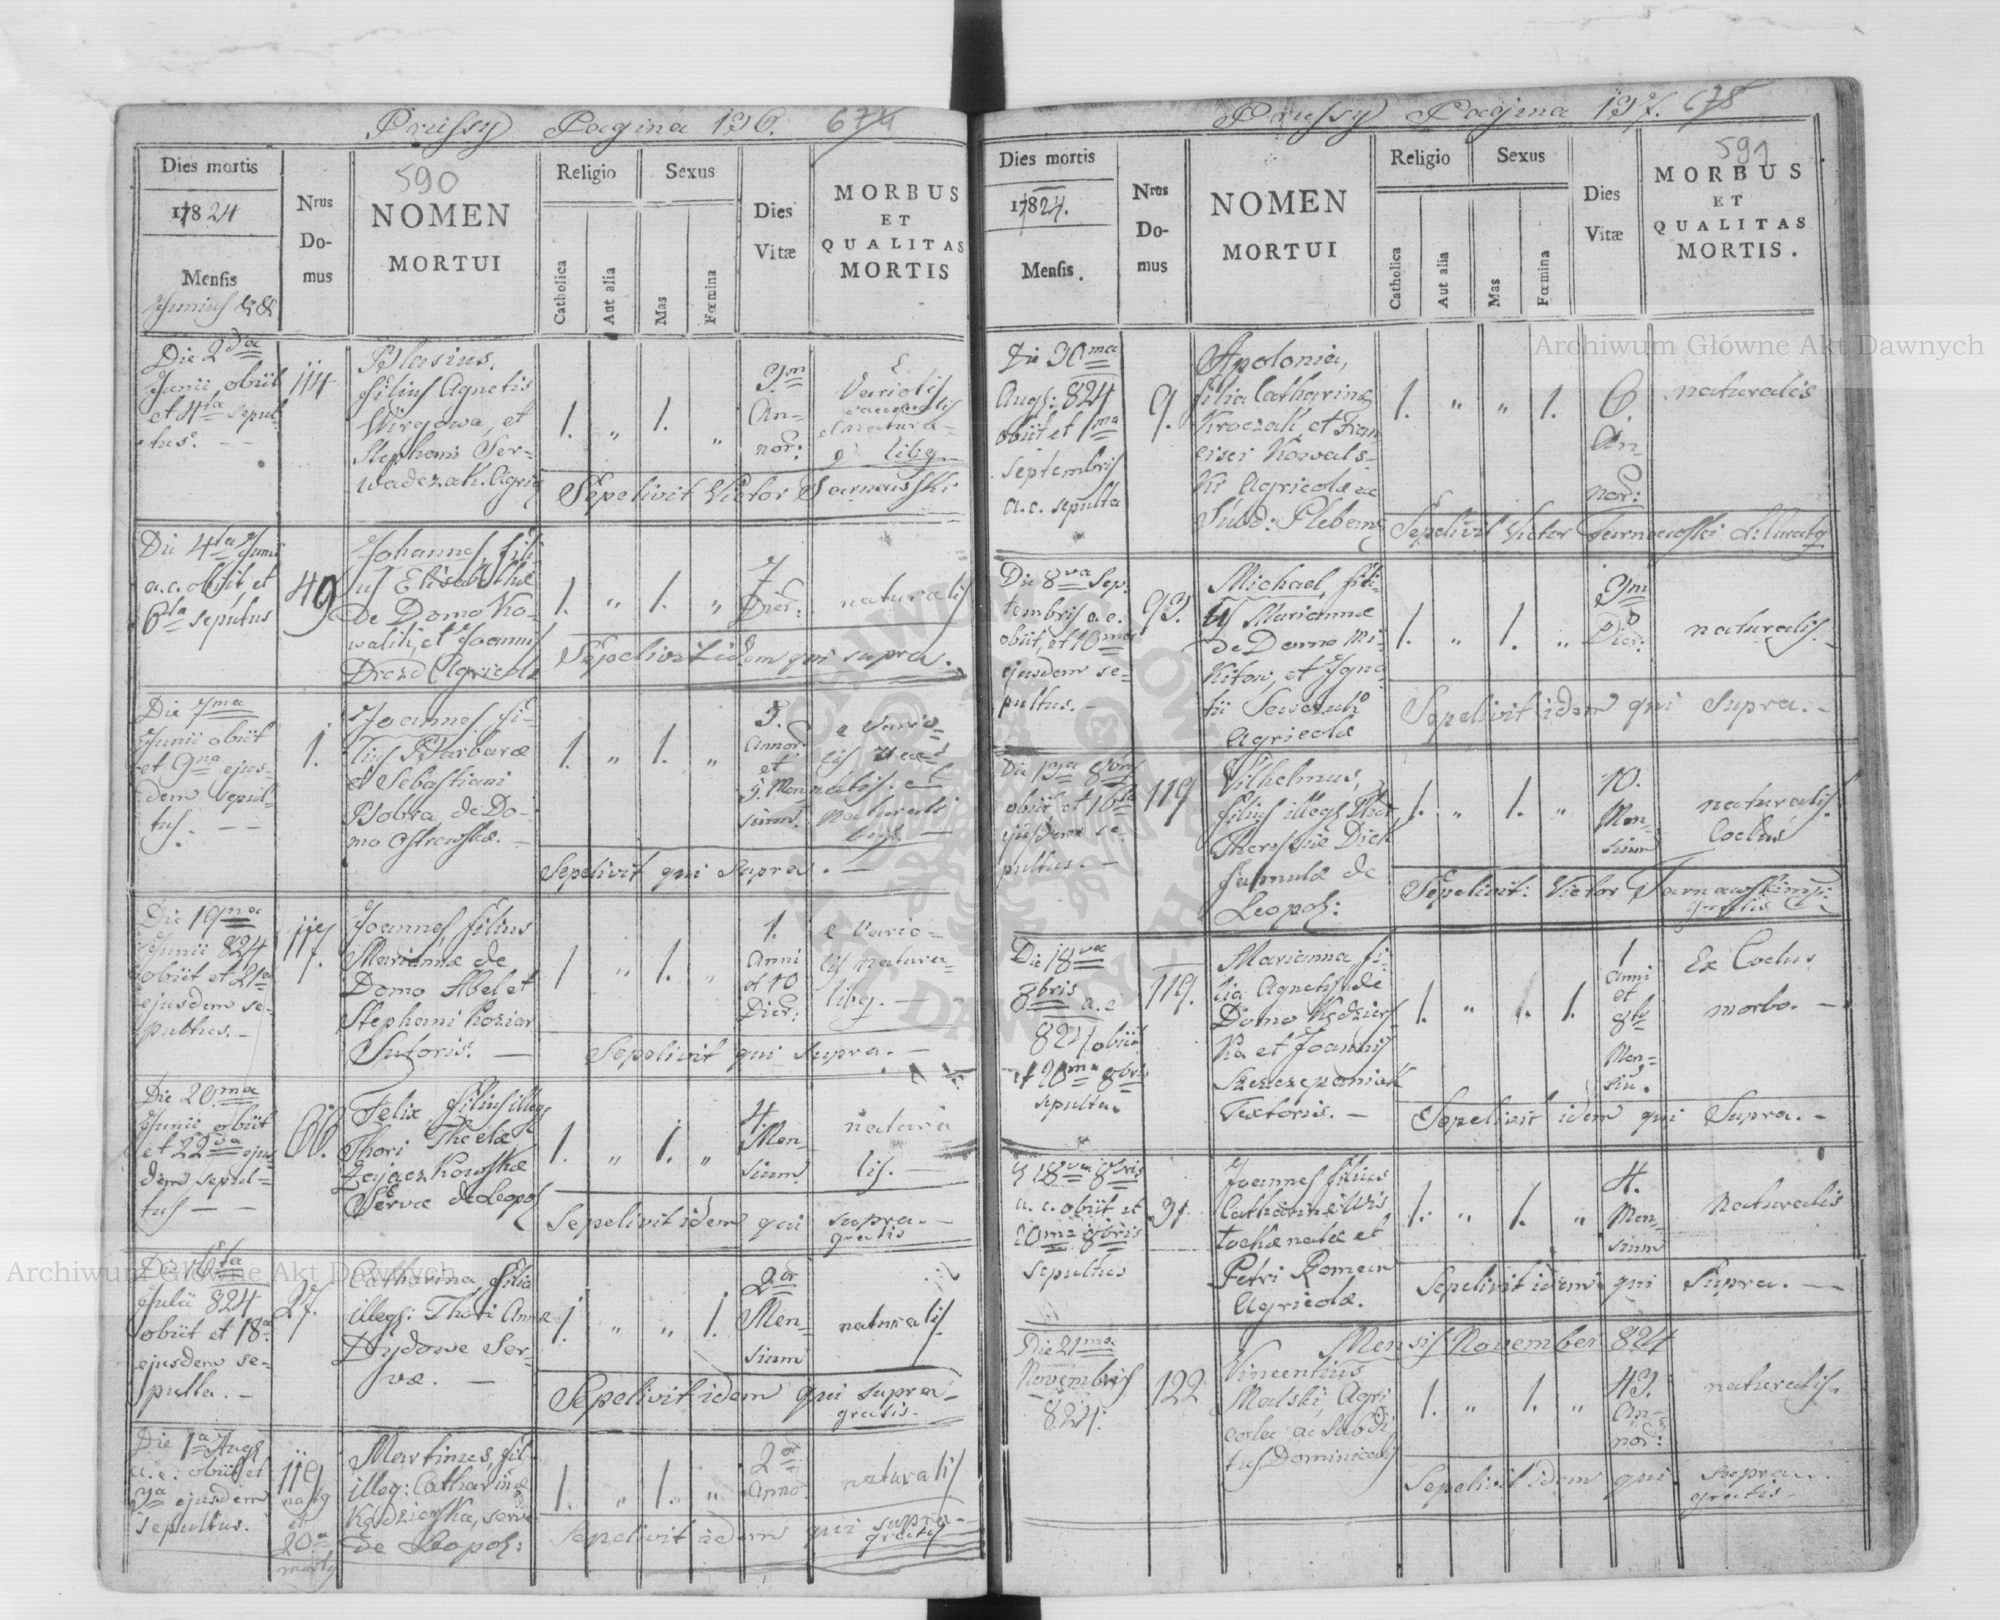 Prussy Pagina 136. 674
Dies mortis
1824
Mensis
Junius
Nrus
Do-
mus
590
NOMEN
MORTUI
Religio
Sexus
Catholica
Aut alia
Mas
Fœmina
Dies
Vitæ
MORBUS
ET
QUALITAS
MORTIS
Die 2da
Junii obiit
et 4ta sepul-
tus. – –
114
Blasius,
filius Agnetis
et
Stephani Ser-
wadczak. Agric
1. „ 1. „
9m
An-
nor:
Variolis
et natura-
Sepelivit Victor Tarnawski
Die 4ta Junii
a.c. obiit, et
6ta sepultus
49
Johannes, fili
us Elisabethæ
De Domo Ko-
walik, et Joannis
Drozd Agricolæ
1. „ 1. „
7
Dier:
naturalis
Sepelivit idem qui supra.
Die 7ma
Junii obiit
et 9na ejus-
dem sepul-
tus. – –
1.
Joannes, fi-
lius Barbaræ
et Sebastiani
Bobra, de Do-
mo Ostrowskæ. –
1. „ 1. „
5.
Annor
et
5. Men
sium.
e Vario-
lis
Sepelivit qui supra. –
Die 19na
Junii 824
obiit et 21a
ejusdem se-
pultus. –
117.
Joannes filius
Mariannæ de
Domo Abel et
Stephani Koziar
Sutoris. –
1 „ 1. „
1.
Anni
et 10
Dier:
e Vario-
lis natura-
Sepelivit qui supra. –
Die 20ma
Junii obiit
et 22da ejus-
dem sepul-
tus – –
66.
Felix, filius illegi
Thori Theclæ
Zajaczkowskæ
Servæ de Leopol
1. „ 1. „
4.
Men
sium.
natura
lis. –
Sepelivit idem qui supra. –
gratis
Die 16ta
Julii 824
obiit et 18a
ejusdem se-
pulta. –
27.
Catharina, filia
illegi: Thori Annæ
Dydowe Ser-
væ. –
1. „ „ 1.
2or
Men-
sium
naturalis
Sepelivit idem qui supra –
gratis.
Die 1a Augs
a.c. obiit et
3a ejusdem
sepultus.
119
Martinus, fil-
illeg: Catharinæ
Kędzierska, servæ
de Leopol:
1. „ 1. „
2or
Anno.
naturalis
Sepelivit idem qui supra –
gratis
Prussy Pagina 137. 678
Dies mortis
1824.
Mensis.
Nros
Do-
mus
NOMEN
MORTUI
Religio
Sexus
Catholica
Aut alia
Mas
Fœmina
Dies
Vitæ
591
MORBUS
ET
QUALITAS
MORTIS.
Die 30ma
Augs: 824
obiit et 1ma
Septembris
a.c. sepulta
9.
Apolonia,
filia Catharinæ
Kroczak, et Fran
cisci Kowals-
ki Agricolæ ac
Subd: Plebem
1. „ „ 1.
6.
An-
nor:
naturales
Sepelivit Victor Tarnawski
Die 8va Sep-
tembris a.c.
obiit, et 10ma
ejusdem se-
pultus. –
93.
Michael, fili-
us Mariannæ
de Domo Mi-
kitow, et Igna
tii Sewczuk
Agricolæ
1. „ 1. „
9m
Dier:
naturalis.
Sepelivit idem qui supra. –
Die 13a 8bris
obiit et 16ta
ejusdem se-
pultus. –
119
Vilhelmus,
filius illegi Thor
Theressiæ Dick
famulæ de
Leopol:
1. „ 1. „
10.
Men-
sium
naturalis.
Coetus
Sepelivit: Victor Tarnawski
gratis
Die 18va
8bris a.c
824 obiit
et 20ma 8bris
sepulta.
119.
Marianna fi-
lia Agnetis de
Domo Kędziers
ka et Joannis
Szczczepaniak
Textoris. –
1. „ 1. 1.
1
Anni
et
8to
Men-
siu.
Ex Coetus
morbo. –
Sepelivit idem qui Supra. –
18va 8bris
a.c. obiit et
20ma 8bris
sepultus
31
Joannes filius
Catharinæ
et
Petri Roman
Agricolæ.
1. „ 1. „
4.
Men-
sium
Naturalis
Sepelivit idem qui Supra. –
Mensis November 824
Die 21ma
Novembris
824:
122
Vincentius
Malski, Agri
cola ac Subdi
tus Dominicalis
1. „ 1. „
43.
An-
nor:
naturalis.
Sepelivit idem qui supra.
gratis –
Archiwum Główne Akt Dawnych
Archiwum Główne Akt Dawnych
ARCHIWUM GŁÓWNE AKT DAWNYCH